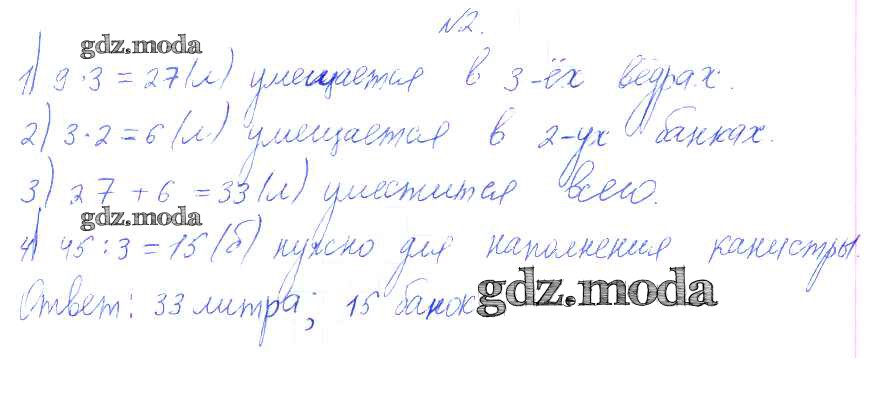 №2.
gdz.moda
1) 9·3=27(л) умещается в 3-ёх вёдрах.
2) 3·2=6(л) умещается в 2-ух банках.
3) 27+6=33(л) уместится всего.
gdz.moda
4) 45:3=15(б) нужно для наполнения канистры.
Ответ: 33 литра; 15 банок
gdz.moda